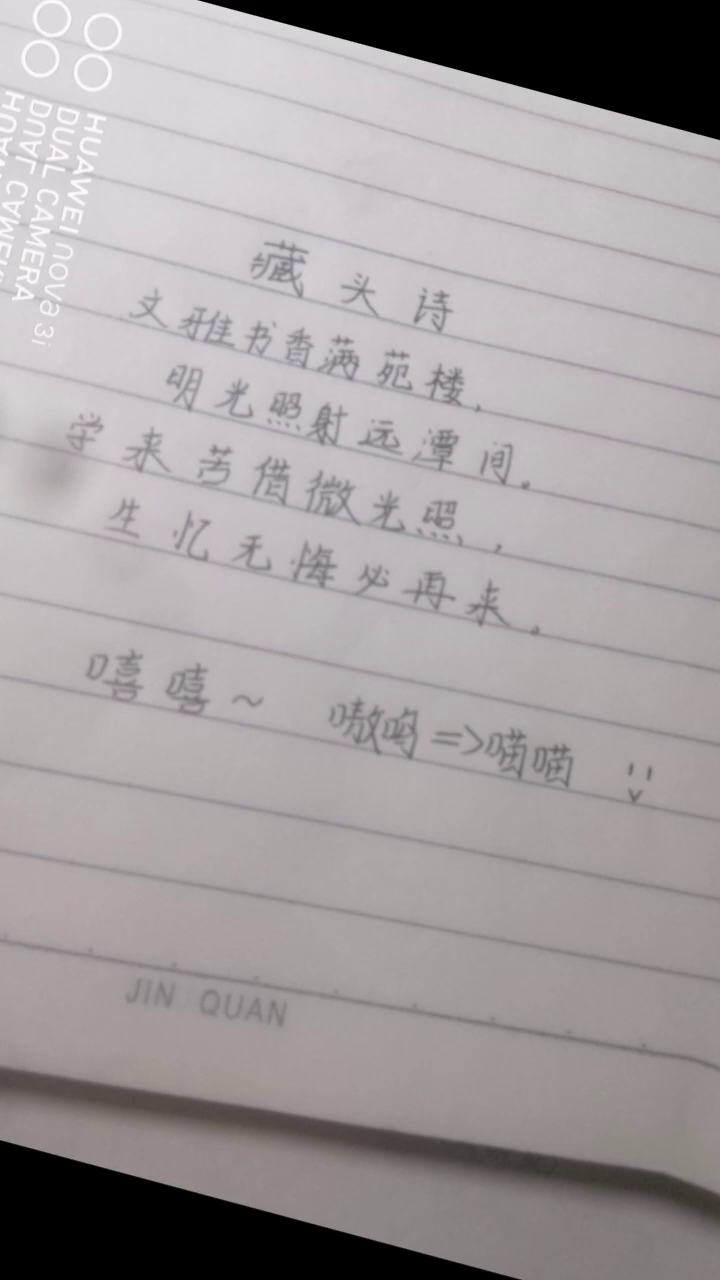 藏头诗
文雅书香满苑楼,
明光照射远潭间。
学来苦借微光照,
生忆无悔必再来。
嘻嘻~ 嗷呜=>喵喵
JIN QUAN
HUAWEI nova 3i
DUAL CAMERA